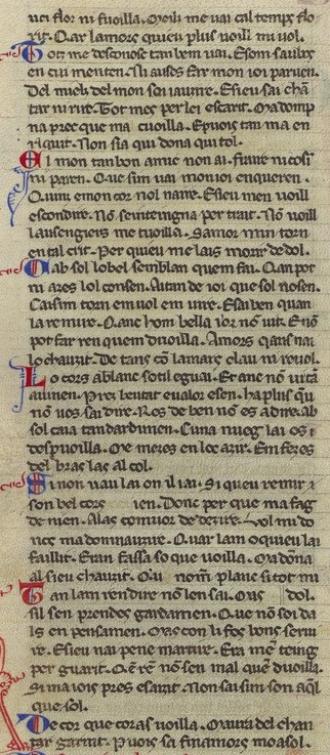 uei flor ni fuoilla. Meill me vai cal temps flo
rit. Car lamors quieu plus voill mi vol.
Totz me desconose tan bem vai. Esom saubes
en cui menten. Ni auses far mon ioi parven.
Del miels del mon sei iauire. Esieu sai chā
tar ni rire. Tot mes per lei escarit. Ma domp
na prec que ma cuoilla. E puois tan ma en
riquit. Non sia qui dona qui tol.
El mon tan bon amic non ai. Fraire ni cosi
ni paren. Que sim vai mon ioi enqueren.
Quinz e mon cor nol naire. Esieu men voill
escondire. No seintengna per trair. Nō voill
lausengiers me tuoilla. Samor nim torn
en tal crit. Per quieu me lais morir de dol.
Cab sol lo bel semblan quem fai. Can pot
ni aizes lol consen. Ai tan de ioi que sol nosen.
Caisim torn em vol em vire. E sai ben quan
la remire. Canc hom bella ior nō vit. E nō
pot far ren quem duoilla. Amors qans nai
lo chauzit. De tans cō lamars clau ni revol.
Lo cors ablanc sotil eguai. Et anc nō vist tā
avinen. Pretz beutat e valor e sen. ha plus qu
nō vos sai dire. Res de ben no es adire. ab
sol caia tan dardimen. Cuna nueg lai os i
despuoilla. Me meres en loc aizit. Em feres
del bras las al col.
Si non vau lai on il iai. Si queu remir i
son bel cors ien. Donc per que ma fag
de nien. Alas com mor de dezire. Vol mi do
nes ma domn aucire. Quar lam o quieu lai
faillit. Eran fassa so que voilla. Ma dōna
al sieu chauzit. Qui nom plane si tot mi
Tan lam rendire nō len sai. Mas dol.
sil sen prendes gardamen. Que nō soi da
ls en pensamen. Mas con li fos bons servi
re. Esieu nai pene martire. Era me teing
per guarit. Cē rē nō sen mal que duoilla.
Si ma iois pres e sanzit. Non sai sim son aq̄l
que sol.
Decor que coras voilla. Maura del chan
tar garnit. Puois sa finamors mo asol.